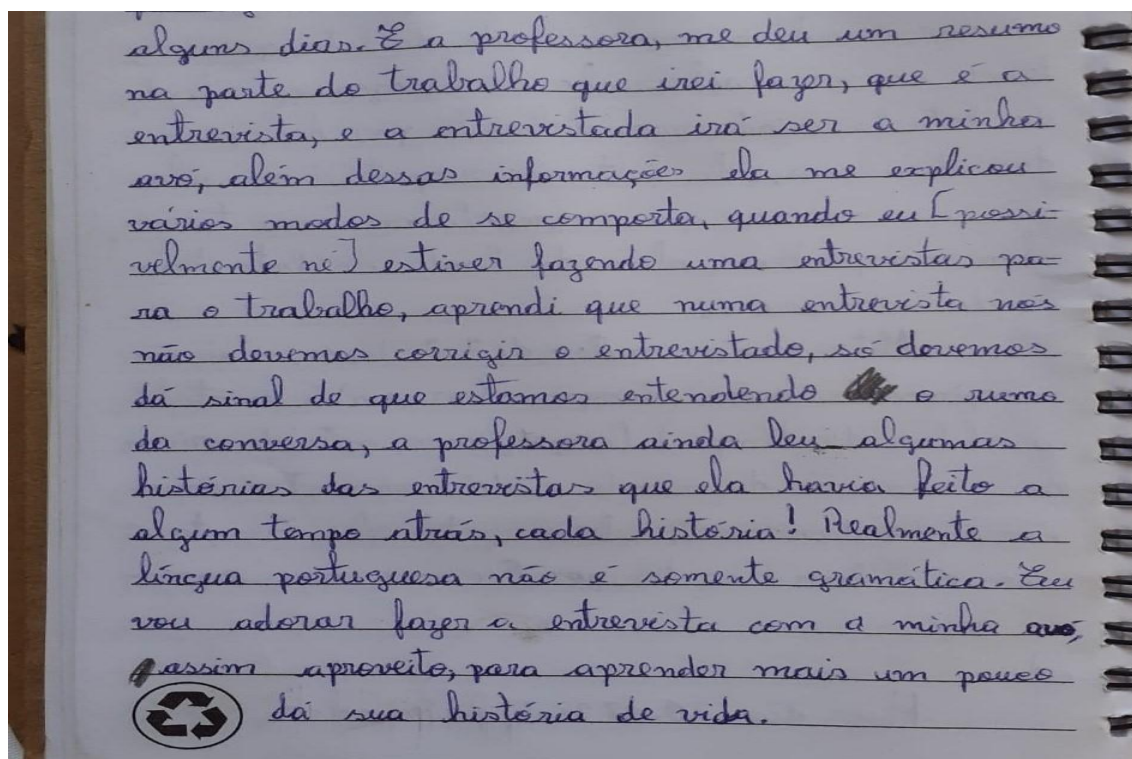 alguns dias. E a professora, me deu um resumo
na parte do trabalho que irei fazer, que é a
entrevista, e a entrevistada irá ser a minha
avó, além dessas informações ela me explicou
vários modos de se comporta, quando eu [possi-
velmente né] estiver fazendo uma entrevistas pa-
ra o trabalho, aprendi que numa entrevista nós
não devemos corrigir o entrevistado, só devemos
dá sinal de que estamos entendendo o rumo
da conversa, a professora ainda leu algumas
histórias das entrevistas que ela havia feito a
algum tempo atrás, cada história! Realmente a
língua portuguesa não é somente gramática. Eu
vou adorar fazer a entrevista com a minha avó,
assim aproveito, para aprender mais um pouco
dá sua história de vida.